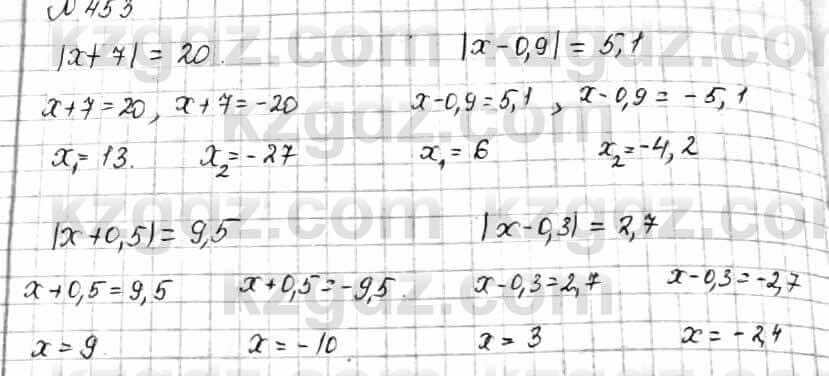 № 453
|x+7| = 20.
|x-0,9| = 5,1
x+7=20, x+7=-20
x-0,9=5,1, x-0,9=-5,1
x₁=13. x₂=-27
x₁=6 x₂=-4,2
|x+0,5|=9,5
|x-0,3|=2,7
x+0,5=9,5 x+0,5=-9,5.
x-0,3=2,7 x-0,3=-2,7
x=9 x=-10.
x=3 x=-2,4
kzgdz.com